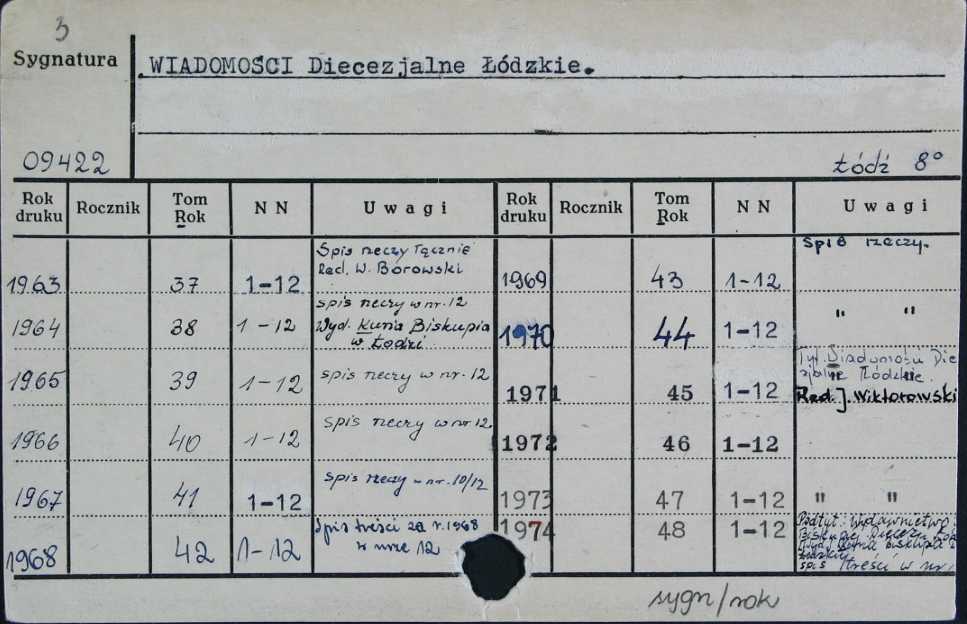 3
Sygnatura
WIADOMOŚCI Diecezjalne Łódzkie.
09422
Łódź 8°
Rok druku Rocznik Tom Rok NN Uwagi Rok druku Rocznik Tom Rok NN Uwagi
1963 37 1-12 Spis rzeczy łącznie
Red. W. Borowski
1964 38 1-12 spis rzeczy w nr. 12
Wyd. Kuria Biskupia
w Łodzi
1965 39 1-12 spis rzeczy w nr. 12
1966 40 1-12 spis rzeczy w nr 12
1967 41 1-12 spis rzeczy w nr. 10/12
1968 42 1-12 Spis treści za r. 1968
w nrze 12
1969 43 1-12 Spis rzeczy.
1970 44 1-12 " "
1971 45 1-12 Tyt. Wiadomości Die
Łódzkie.
Red. J. Wiktorowski
1972 46 1-12
1973 47 1-12 " "
1974 48 1-12 Podtyt. Wydawnictwo
spis treści w nr
sygn/rok